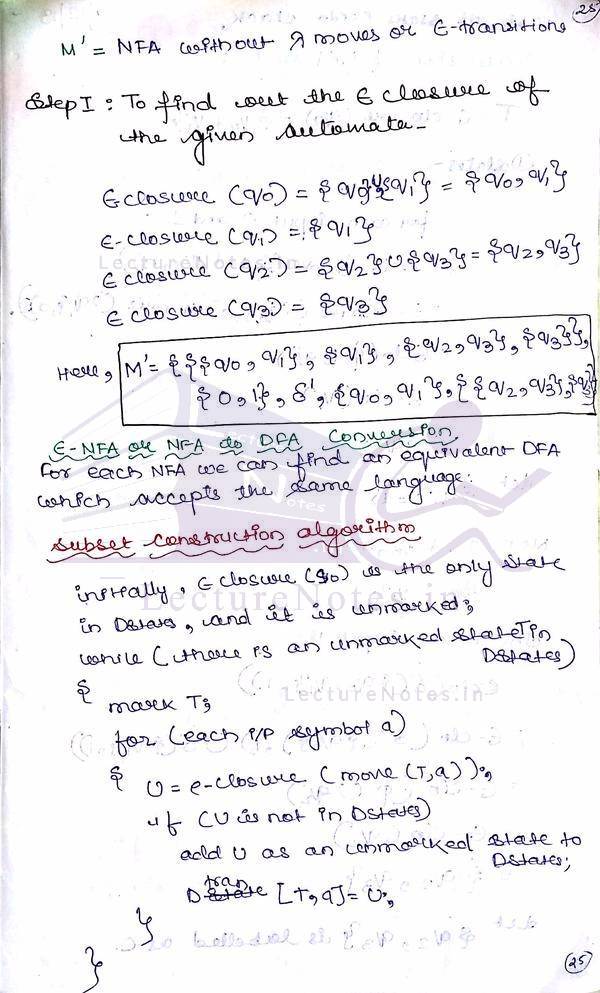 25
M' = NFA without λ moves or ε-transitions
Step I : To find out the ε closure of
the given automata-
ε closure (q0) = {q0} ∪ {q1} = {q0, q1}
ε-closure (q1) = {q1}
ε closure (q2) = {q2} ∪ {q3} = {q2, q3}
ε closure (q3) = {q3}
Here, M' = {{{q0, q1}, {q1}, {q2, q3}, {q3}},
{0, 1}, δ', {q0, q1}, {{q2, q3}, {q3}
ε-NFA or NFA to DFA Conversion
For each NFA we can find an equivalent DFA
which accepts the same language.
Subset construction algorithm
initially, ε closure (q0) is the only state
in Dstates, and it is unmarked;
while (there is an unmarked state T in
Dstates)
{
mark T;
for (each i/p symbol a)
{
U = e-closure (move (T, a));
if (U is not in Dstates)
add U as an unmarked state to
Dstates;
Dtran [T, a] = U;
}
}
25
LectureNotes.in
LectureNotes.in
LectureNotes.in